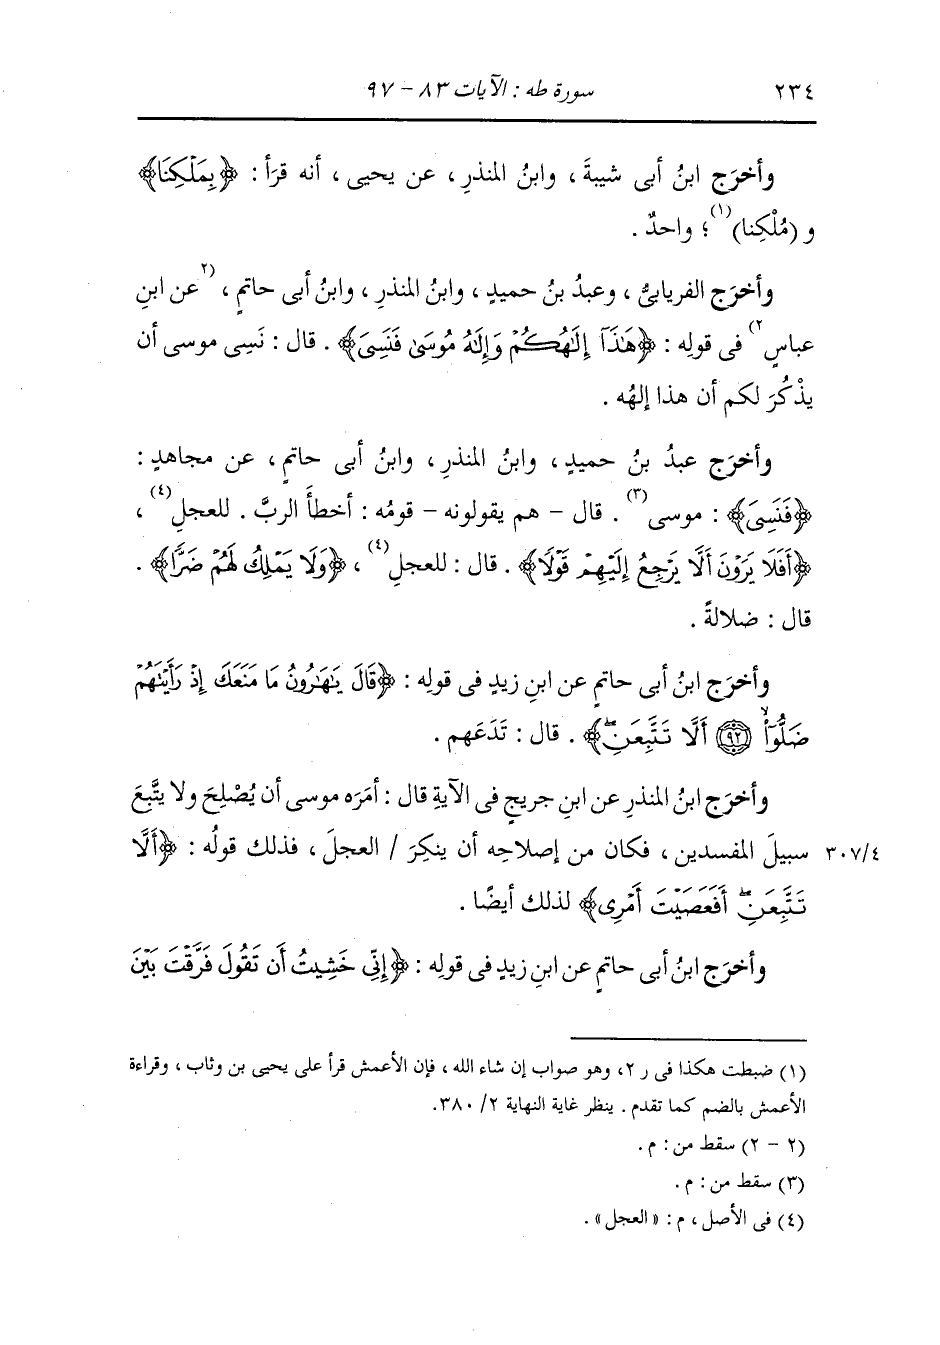 ٢٣٤ سورة طه : الآيات ٨٣ - ٩٧
وأخرَج ابنُ أبى شيبةَ ، وابنُ المنذرِ ، عن يحيى ، أنه قرَأ : ﴿بِمَلْكِنَا﴾
و (مُلْكِنا)(١)؛ واحدٌ .
وأخرَج الفريابىُّ ، وعبدُ بنُ حميدٍ ، وابنُ المنذرِ ، وابنُ أبى حاتمٍ ، (٢عن ابنِ
عباسٍ٢) فى قولِه : ﴿هَٰذَآ إِلَٰهُكُمْ وَإِلَٰهُ مُوسَىٰ فَنَسِىَ﴾ . قال : نَسِى موسى أن
يذْكُرَ لكم أن هذا إلهُه .
وأخرَج عبدُ بنُ حميدٍ ، وابنُ المنذرِ ، وابنُ أبى حاتمٍ ، عن مجاهدٍ :
﴿فَنَسِىَ﴾ : موسى(٣) . قال - هم يقولونه - قومُه : أخطأَ الربَّ . للعجلِ(٤) ،
﴿أَفَلَا يَرَوْنَ أَلَّا يَرْجِعُ إِلَيْهِمْ قَوْلًا﴾ . قال : للعجلِ(٤) ، ﴿وَلَا يَمْلِكُ لَهُمْ ضَرًّا﴾ .
قال : ضلالةً .
وأخرَج ابنُ أبى حاتمٍ عن ابنِ زيدٍ فى قولِه : ﴿قَالَ يَٰهَٰرُونُ مَا مَنَعَكَ إِذْ رَأَيْتَهُمْ
ضَلُّوٓا۟ ۙ ۝٩٢ أَلَّا تَتَّبِعَنِ ۖ﴾ . قال : تَدَعَهم .
وأخرَج ابنُ المنذرِ عن ابنِ جريجٍ فى الآيةِ قال : أمَرَه موسى أن يُصْلِحَ ولا يتَّبِعَ
٣٠٧/٤ سبيلَ المفسدين ، فكان من إصلاحِه أن ينكِرَ / العجلَ ، فذلك قولُه : ﴿أَلَّا
تَتَّبِعَنِ ۖ أَفَعَصَيْتَ أَمْرِى﴾ لذلك أيضًا .
وأخرَج ابنُ أبى حاتمٍ عن ابنِ زيدٍ فى قولِه : ﴿إِنِّى خَشِيتُ أَن تَقُولَ فَرَّقْتَ بَيْنَ
(١) ضبطت هكذا فى ر ٢، وهو صواب إن شاء الله ، فإن الأعمش قرأ على يحيى بن وثاب ، وقراءة
الأعمش بالضم كما تقدم . ينظر غاية النهاية ٢/ ٣٨٠.
(٢ - ٢) سقط من : م .
(٣) سقط من : م .
(٤) فى الأصل ، م : « العجل » .